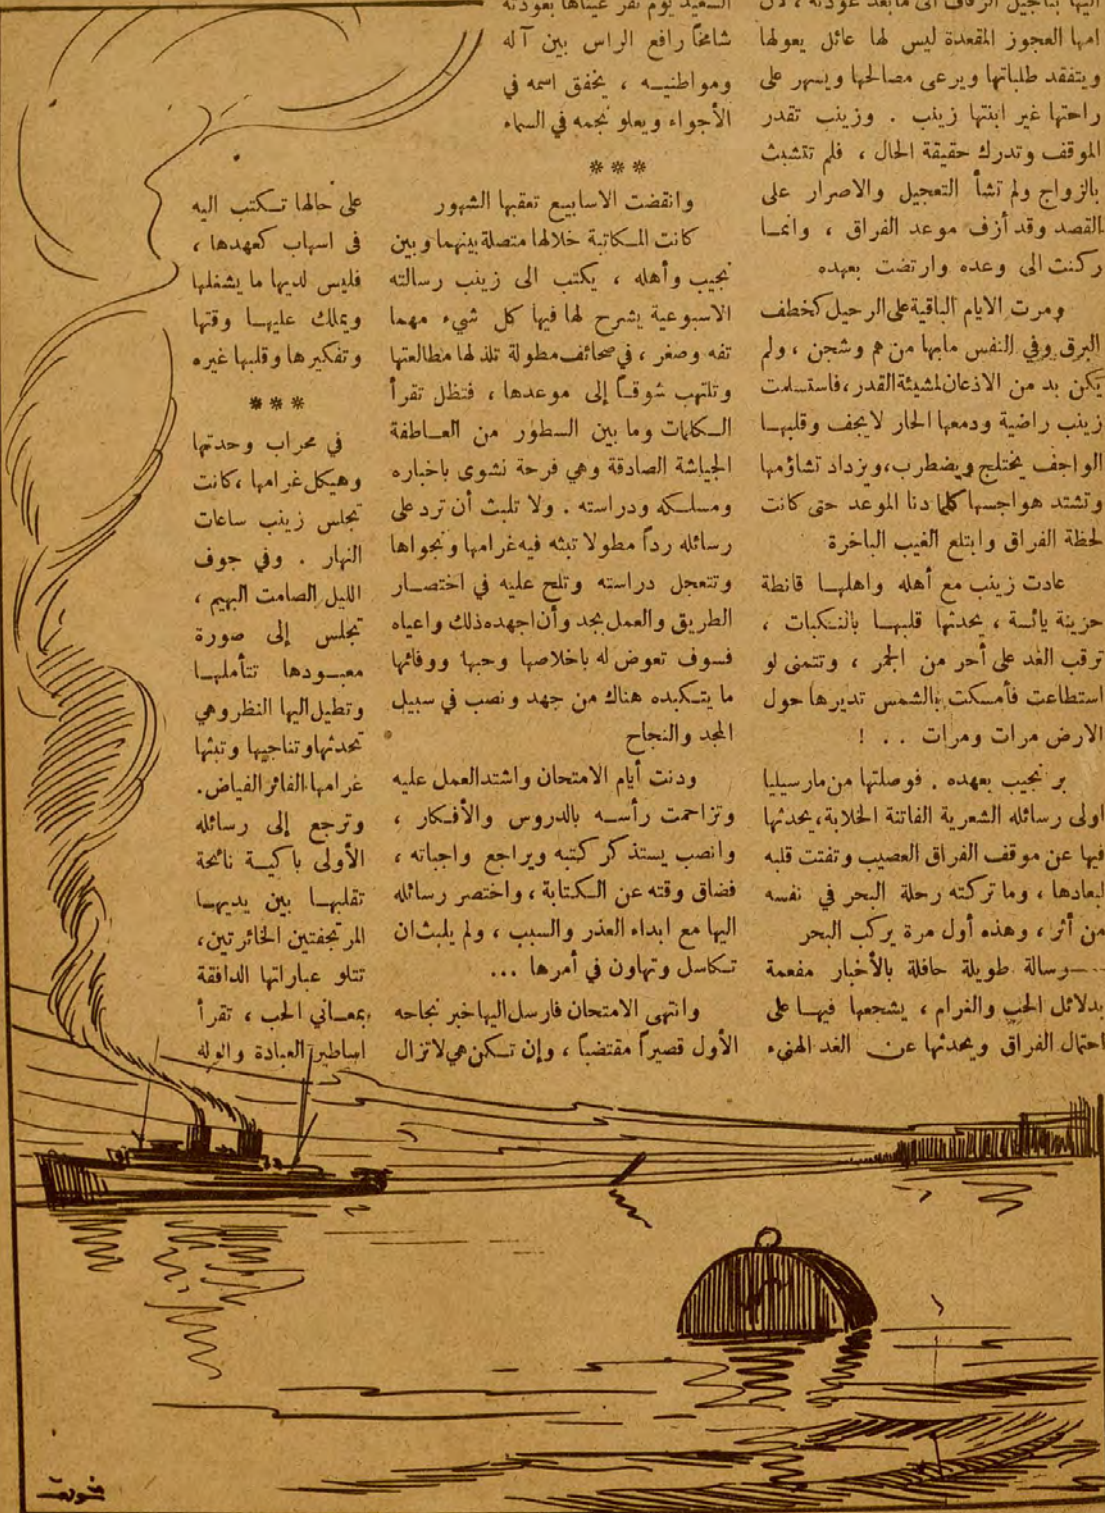 اليها بتأجيل الزفاف الى مابعد عودته ، لأن
امها العجوز المقعدة ليس لها عائل يعولها
ويتفقد طلباتها ويرعى مصالحها ويسهر على
راحتها غير ابنتها زينب . وزينب تقدر
الموقف وتدرك حقيقة الحال ، فلم تتشبث
بالزواج ولم تشأ التعجيل والاصرار على
القصد وقد أزف موعد الفراق ، وانما
ركنت الى وعده وارتضت بعهده
ومرت الايام الباقية على الرحيل كخطف
البرق وفي النفس مابها من هم وشجن ، ولم
يكن بد من الاذعان لمشيئة القدر ، فاستسلمت
زينب راضية ودمعها الحار لايجف وقلبها
الواجف يختلج ويضطرب ، ويزداد تشاؤمها
وتشتد هواجسها كلما دنا الموعد حتى كانت
لحظة الفراق وابتلع الغيب الباخرة
عادت زينب مع أهله واهلها قانطة
حزينة يائسة ، يحدثها قلبها بالنكبات ،
ترقب الغد على أحر من الجمر ، وتتمنى لو
استطاعت فأمسكت بالشمس تديرها حول
الارض مرات ومرات . . !
بر نجيب بعهده . فوصلتها من مارسيليا
اولى رسائله الشعرية الفاتنة الخلابة ، يحدثها
فيها عن موقف الفراق العصيب وتفتت قلبه
لبعادها ، وما تركته رحلة البحر في نفسه
من أثر ، وهذه أول مرة يركب البحر
--رسالة طويلة حافلة بالأخبار مفعمة
بدلائل الحب والغرام ، يشجعها فيها على
احتمال الفراق ويحدثها عن الغد الهنيء
السعيد يوم تقر عيناها بعودته
شامخاً رافع الراس بين آله
ومواطنيه ، يخفق اسمه في
الأجواء ويعلو نجمه في السماء
***
وانقضت الاسابيع تعقبها الشهور
كانت المكاتبة خلالها متصلة بينهما وبين
نجيب وأهله ، يكتب الى زينب رسالته
الاسبوعية يشرح لها فيها كل شيء مهما
تفه وصغر ، في صحائف مطولة تلذ لها مطالعتها
وتلتهب شوقاً إلى موعدها ، فتظل تقرأ
الكلمات وما بين السطور من العاطفة
الجياشة الصادقة وهي فرحة نشوى باخباره
ومسلكه ودراسته . ولا تلبث أن ترد على
رسائله رداً مطولا تبثه فيه غرامها ونجواها
وتتعجل دراسته وتلح عليه في اختصار
الطريق والعمل بجد وأن اجهده ذلك واعياه
فسوف تعوض له باخلاصها وحبها ووفائها
ما يتكبده هناك من جهد ونصب في سبيل
المجد والنجاح
ودنت أيام الامتحان واشتد العمل عليه
وتزاحمت رأسه بالدروس والأفكار ،
وانصب يستذكر كتبه ويراجع واجباته ،
فضاق وقته عن الكتابة ، واختصر رسائله
اليها مع ابداء العذر والسبب ، ولم يلبث ان
تكاسل وتهاون في أمرها ...
وانتهى الامتحان فارسل اليها خبر نجاحه
الأول قصيراً مقتضباً ، وإن تكن هي لاتزال
على حالها تكتب اليه
فى اسهاب كعهدها ،
فليس لديها ما يشغلها
ويملك عليها وقتها
وتفكيرها وقلبها غيره
***
في محراب وحدتها
وهيكل غرامها ، كانت
تجلس زينب ساعات
النهار . وفي جوف
الليل الصامت البهيم ،
تجلس إلى صورة
معبودها تتأملها
وتطيل اليها النظر وهي
تحدثها وتناجيها وتبثها
غرامها الفائر الفياض .
وترجع إلى رسائله
الأولى باكية نائحة
تقلبها بين يديها
المرتجفتين الخائرتين ،
تتلو عباراتها الدافقة
بمعاني الحب ، تقرأ
اساطير العبادة والوله